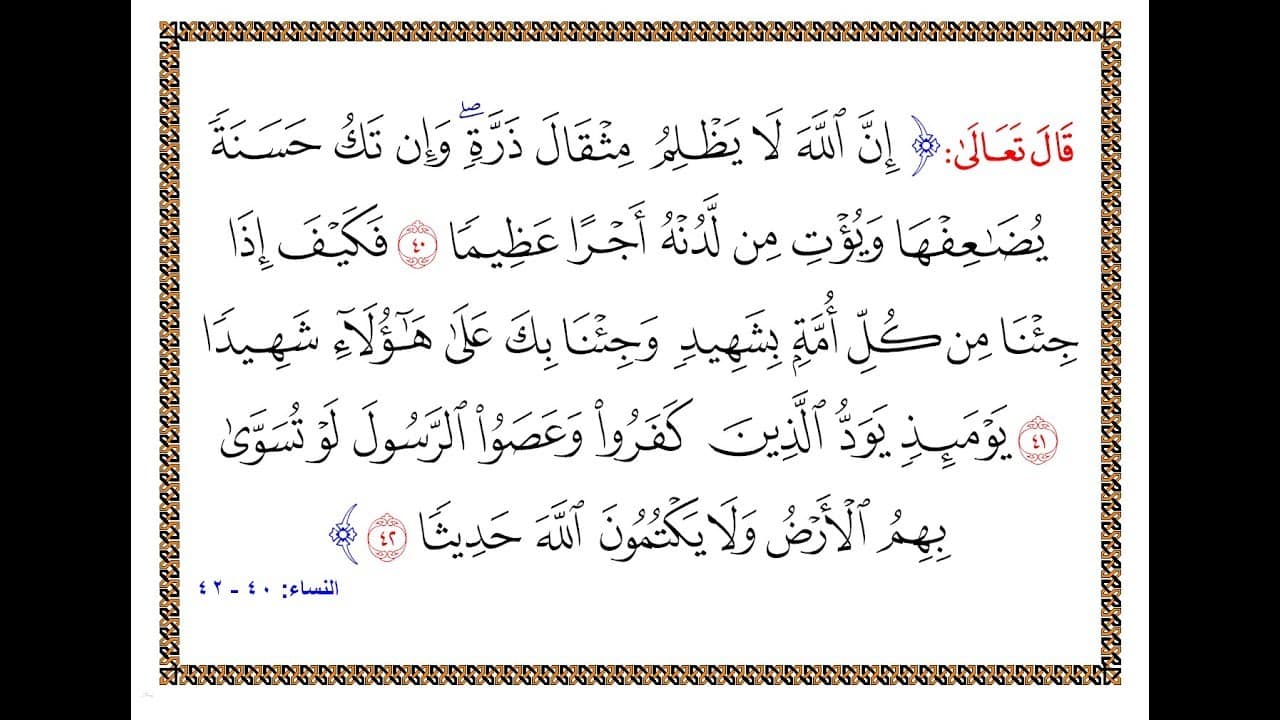 قَالَ تَعَالَىٰ: ﴿ إِنَّ ٱللَّهَ لَا يَظۡلِمُ مِثۡقَالَ ذَرَّةٖۖ وَإِن تَكُ حَسَنَةٗ
يُضَٰعِفۡهَا وَيُؤۡتِ مِن لَّدُنۡهُ أَجۡرًا عَظِيمٗا ٤٠ فَكَيۡفَ إِذَا
جِئۡنَا مِن كُلِّ أُمَّةِۭ بِشَهِيدٖ وَجِئۡنَا بِكَ عَلَىٰ هَٰٓؤُلَآءِ شَهِيدٗا
٤١ يَوۡمَئِذٖ يَوَدُّ ٱلَّذِينَ كَفَرُواْ وَعَصَوُاْ ٱلرَّسُولَ لَوۡ تُسَوَّىٰ
بِهِمُ ٱلۡأَرۡضُ وَلَا يَكۡتُمُونَ ٱللَّهَ حَدِيثٗا ٤٢ ﴾
النساء: ٤٠ - ٤٢